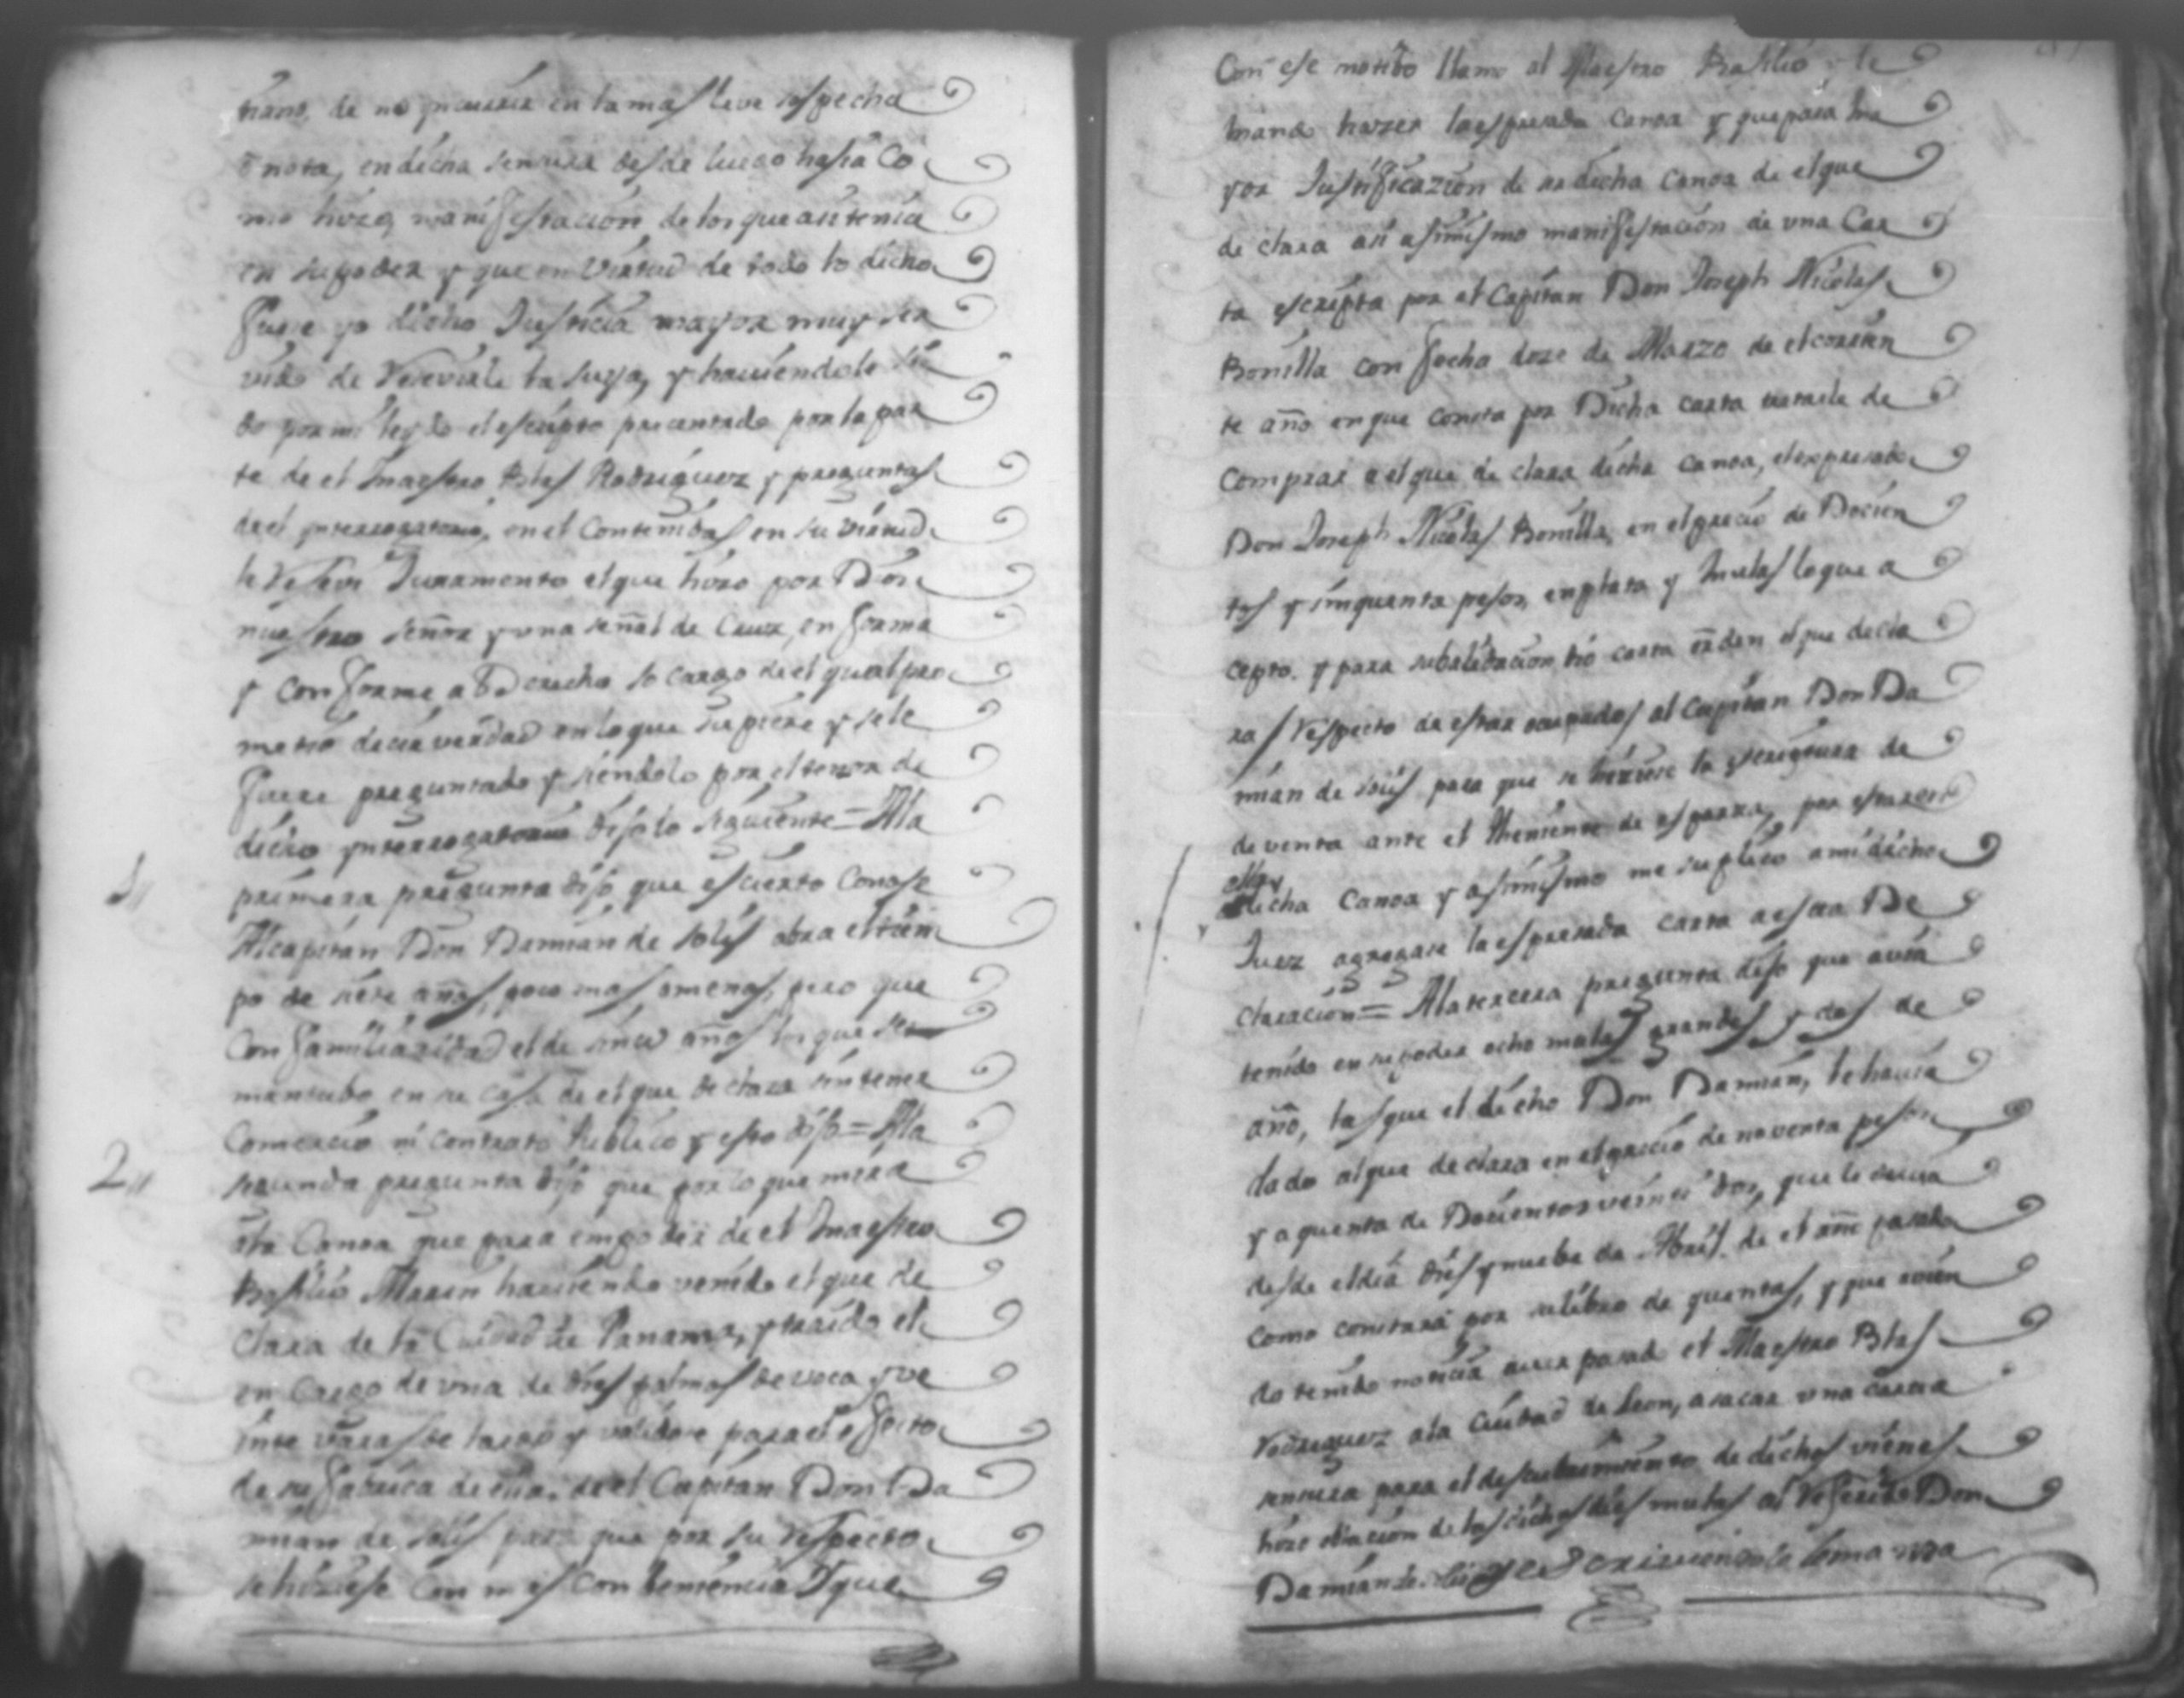 de no yncurrir en la mas leve sospecha
o nota, en dicha sensura desde luego hasia Co
mo hizo, manifestacion de los que asi tenia
en su poder y que en Virtud de todo lo dicho
fuese yo dicho Justicia mayor muy ser
vido de Resevirle la suya, y haviendole si
do por mi leydo el escripto precentado por la par
te de el Maestro Blas Rodriguez y preguntas
de el ynterrogatorio, en el Contenidas en su virtud
le Resevi Juramento el que hizo por Dios
nuestro señor y una señal de Cruz, en forma
y conforme a Derecho so cargo de el qual pro
metio decir verdad en lo que supiere y se le
fuere preguntado y siendolo por el tenor de
dicho ynterrogatorio dijo lo siguiente = Ala
1 primera pregunta dijo que es cierto Conose
Al capitan Don Damian de solis abra el tiem
po de siete años, poco mas omenos, pero que
Con familiaridad el de sinco años los que se
mantubo en su casa de el que declara sin tener
Comercio ni contrato Publico y esto dijo = Ala
2 segunda pregunta dijo que por lo que mira
ala Canoa que para en poder de el Maestro
Basilio Marin haviendo venido el que de
clara de la Ciudad de Panama, y traido el
en Cargo de una de dies palmas de voca y ve
inte varas de largo y validose para el efecto
de su fabrica de el Capitan Don Da
mian de solis para que por su Respecto
se hiziese con mas combeniencia Y que
Con ese motibo llamo al Maestro Basilio y le
mando hazer la espresada canoa y que para ma
yor Justificazion de ser dicha canoa de el que
declara asi asimismo manifestacion de una Car
ta escripta por el Capitan Don Joseph Nicolas
Bonilla con fecha doze de Marzo de el corrien
te año en que consta por Dicha carta tratarle de
comprar a el que declara dicha canoa, el expresado
Don Joseph Nicolas Bonilla, en el precio de Docien
tos y sinquenta pesos, en plata y Mulas lo que a
cepto. y para su balidacion dio carta orden el que decla
ra Respecto de estar ocupados al Capitan Don Da
mian de solis para que se hiziese la escriptura de
de venta ante el theniente de esparza, por estar en
ella
dicha canoa y asimismo me suplico a mi dicho
Juez agregase la espresada carta a esta De
claracion = Ala tercera pregunta dijo que avia
tenido en su poder ocho mulas grandes y dos de
año, las que el dicho Don Damian, le havia
dado al que declara en el precio de noventa pesos
y a quenta de Docientos veinte i dos, que le devia
desde el dia dies y nuebe de Abril de el año pasado
como constara por su libro de quentas, y que avien
do tenido noticia aver pasado el Maestro Blas
Rodriguez ala ciudad de Leon, a sacar una carta
sensura para el descubrimiento de dichos vienes
hizo de las dichas dies mulas al Referido Don
Damian de solis